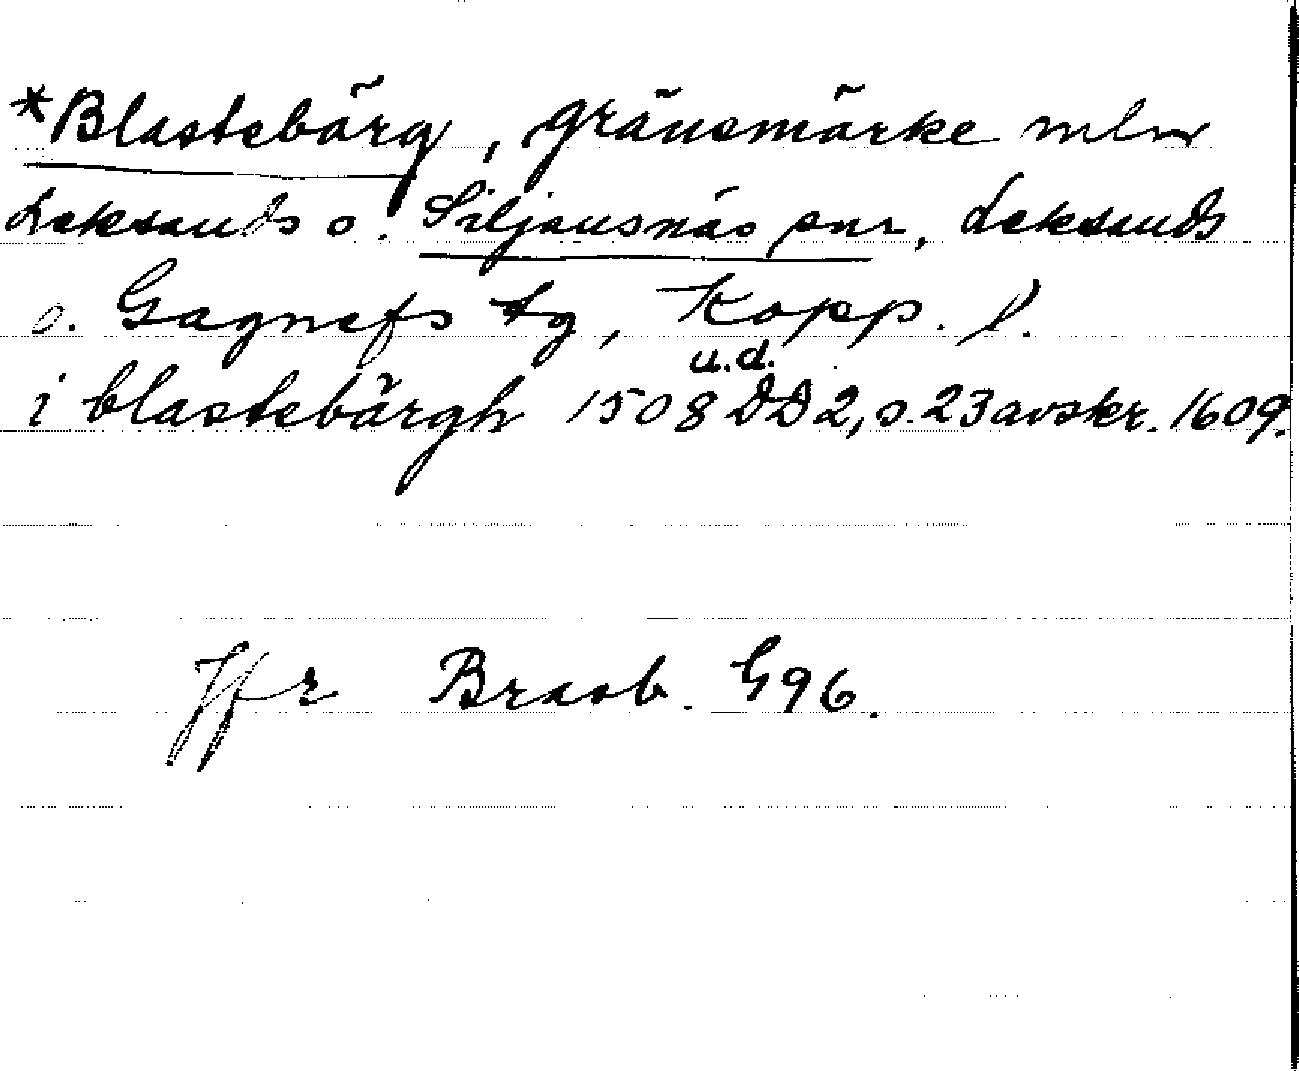 *Blastebärg, gränsmärke mln
Leksands o. Siljansnäs snr, Leksands
o. Gagnefs tg, Kopp. l.
u.d.
i blastebärgh 1508 DD2, s. 23 avskr. 1609.
Jfr Brasb. G96.